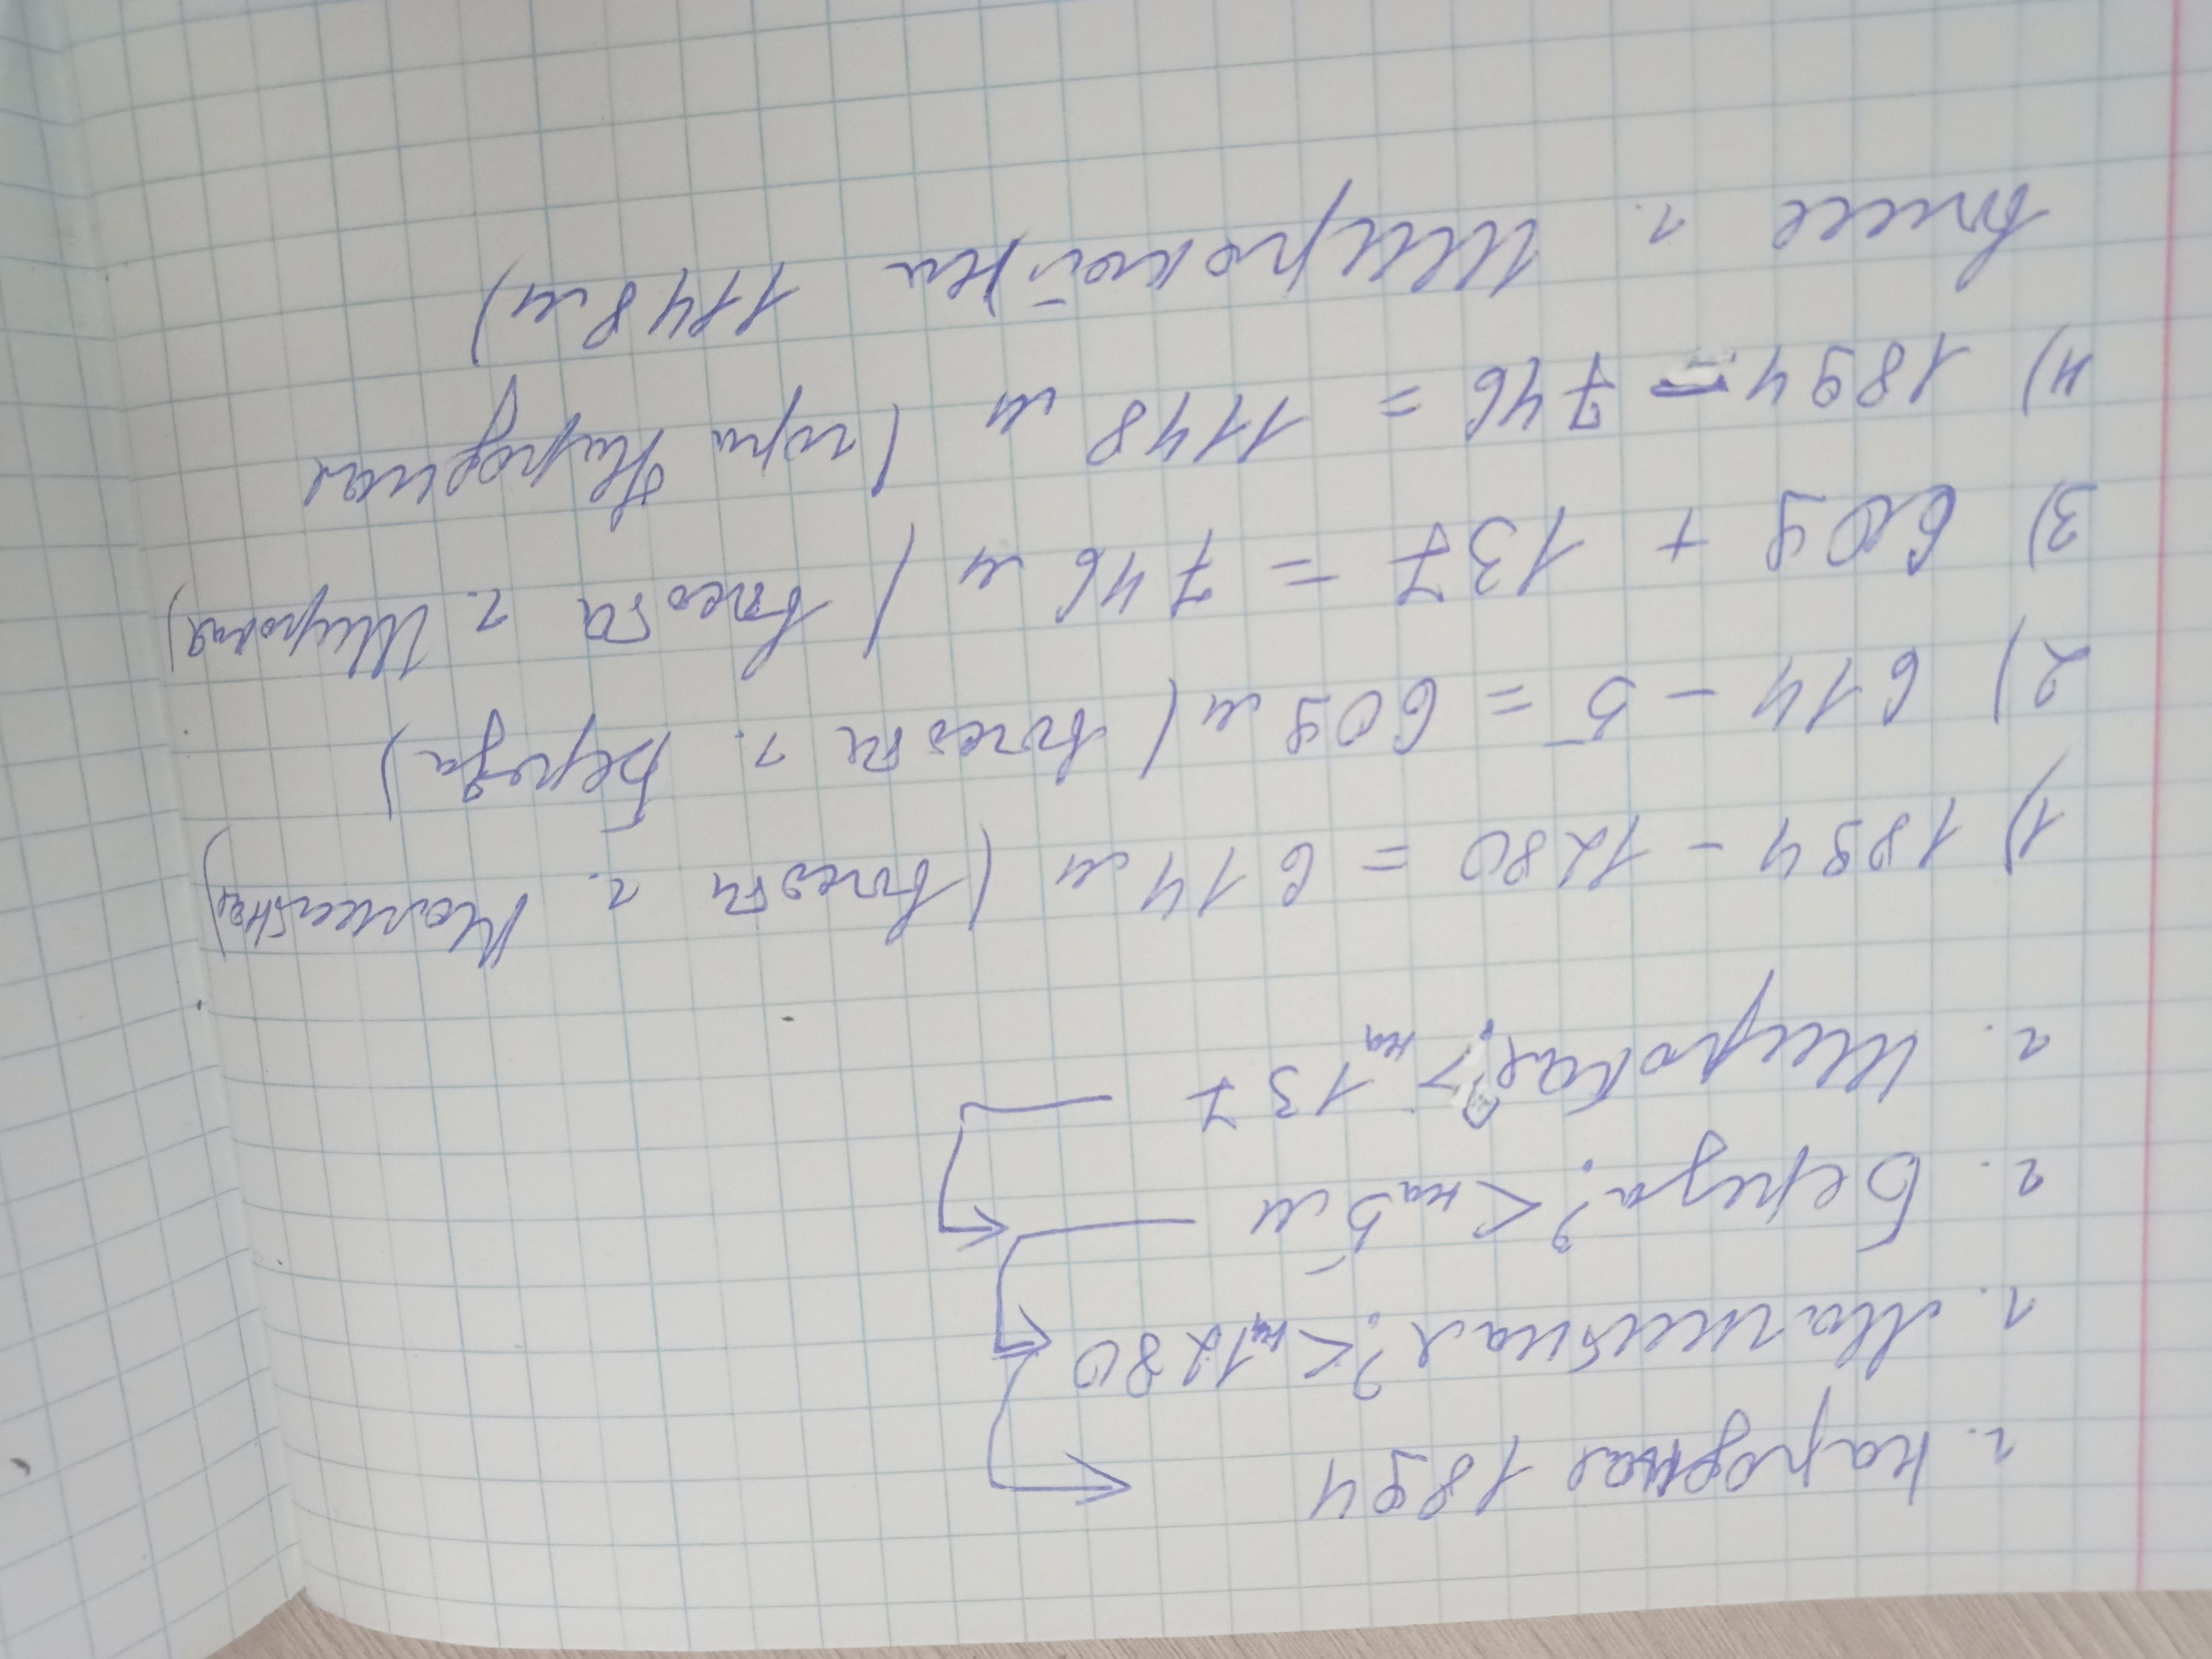 г. Народная 1894
г. Манси-Нёр ? < на 1280
г. Береза ? < на 5 м
г. Широкая ? > на 137
1) 1894 - 1280 = 614 м (высота г.
2) 614 - 5 = 609 м (высота г. Береза)
3) 609 + 137 = 746 м (высота г. Широкая)
4) 1894 - 746 = 1148 м (гора Народная
выше г. Широкой на 1148 м)